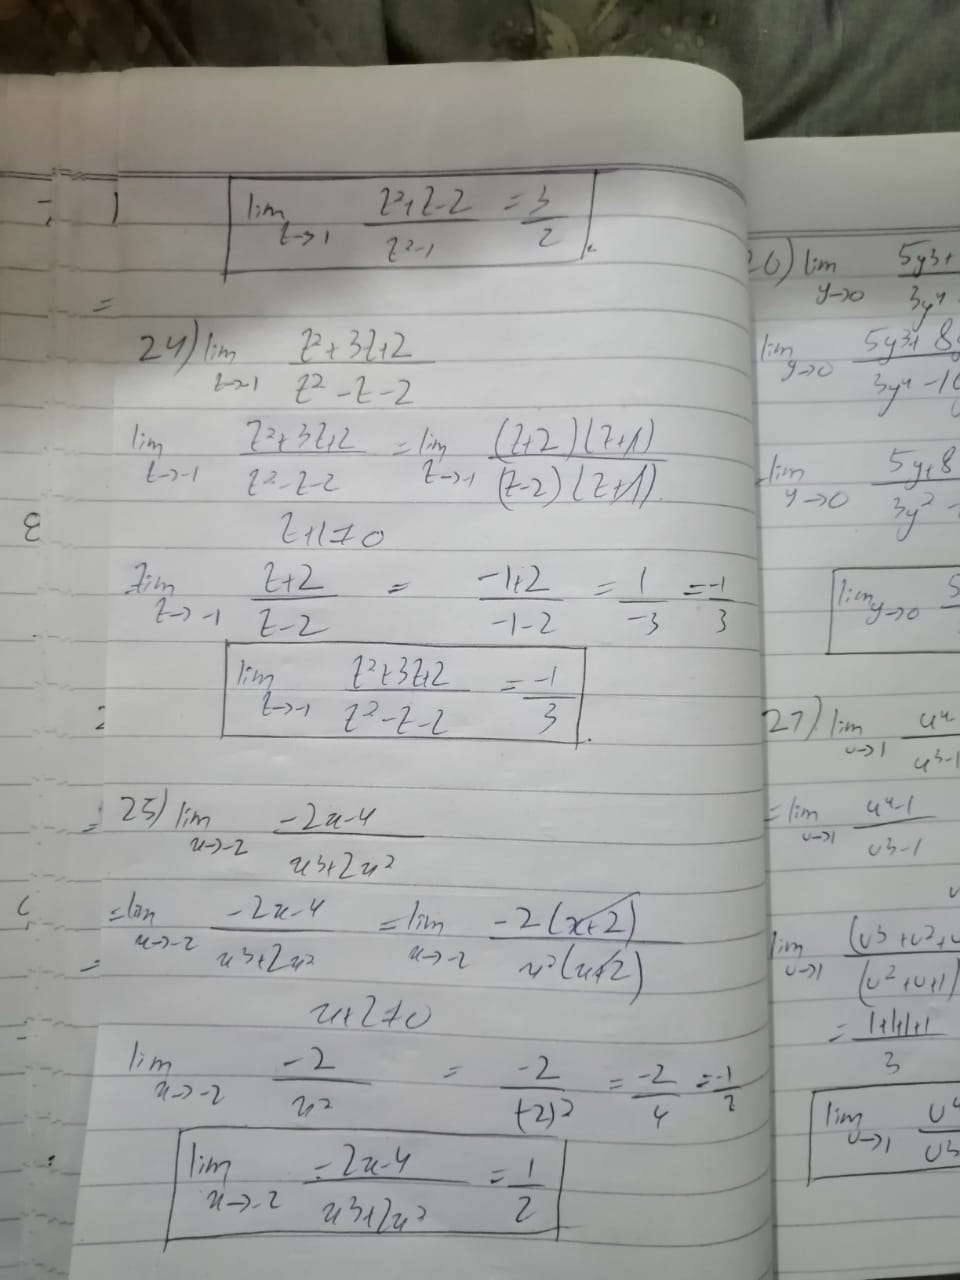 lim z→1 z²+z-2 / z²-1 = 3/2.
24) lim z→-1 z²+3z+2 / z²-z-2
lim z→-1 z²+3z+2 / z²-z-2 = lim z→-1 (z+2)(z+1) / (z-2)(z+1)
z+1≠0
lim z→-1 z+2 / z-2 = -1+2 / -1-2 = 1/-3 = -1/3
lim z→-1 z²+3z+2 / z²-z-2 = -1/3.
25) lim x→-2 -2x-4 / x³+2x²
=lim x→-2 -2x-4 / x³+2x² =lim x→-2 -2(x+2) / x²(x+2)
x+2≠0
lim x→-2 -2 / x² = -2 / (-2)² = -2/4 = -1/2
lim x→-2 -2x-4 / x³+2x² = 1/2
26) lim y→0 5y³+ / 3y⁴
lim y→0 5y³+8 / 3y⁴-16
lim y→0 5y+8 / 3y²
lim y→0 5
27) lim u→1 u⁴- / u³-1
=lim u→1 u⁴-1 / u³-1
lim u→1 (u³+u²+u / (u²+u+1)
= 1+1+1+1 / 3
lim u→1 u⁴ / u³